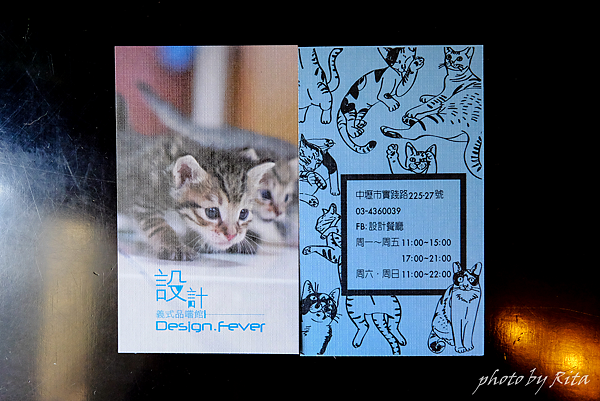 設計
義式品嚐館
Design.Fever
中壢市實踐路225-27號
03-4360039
FB: 設計餐廳
周一～周五 11:00~15:00
17:00~21:00
周六・周日 11:00~22:00
photo by Rita